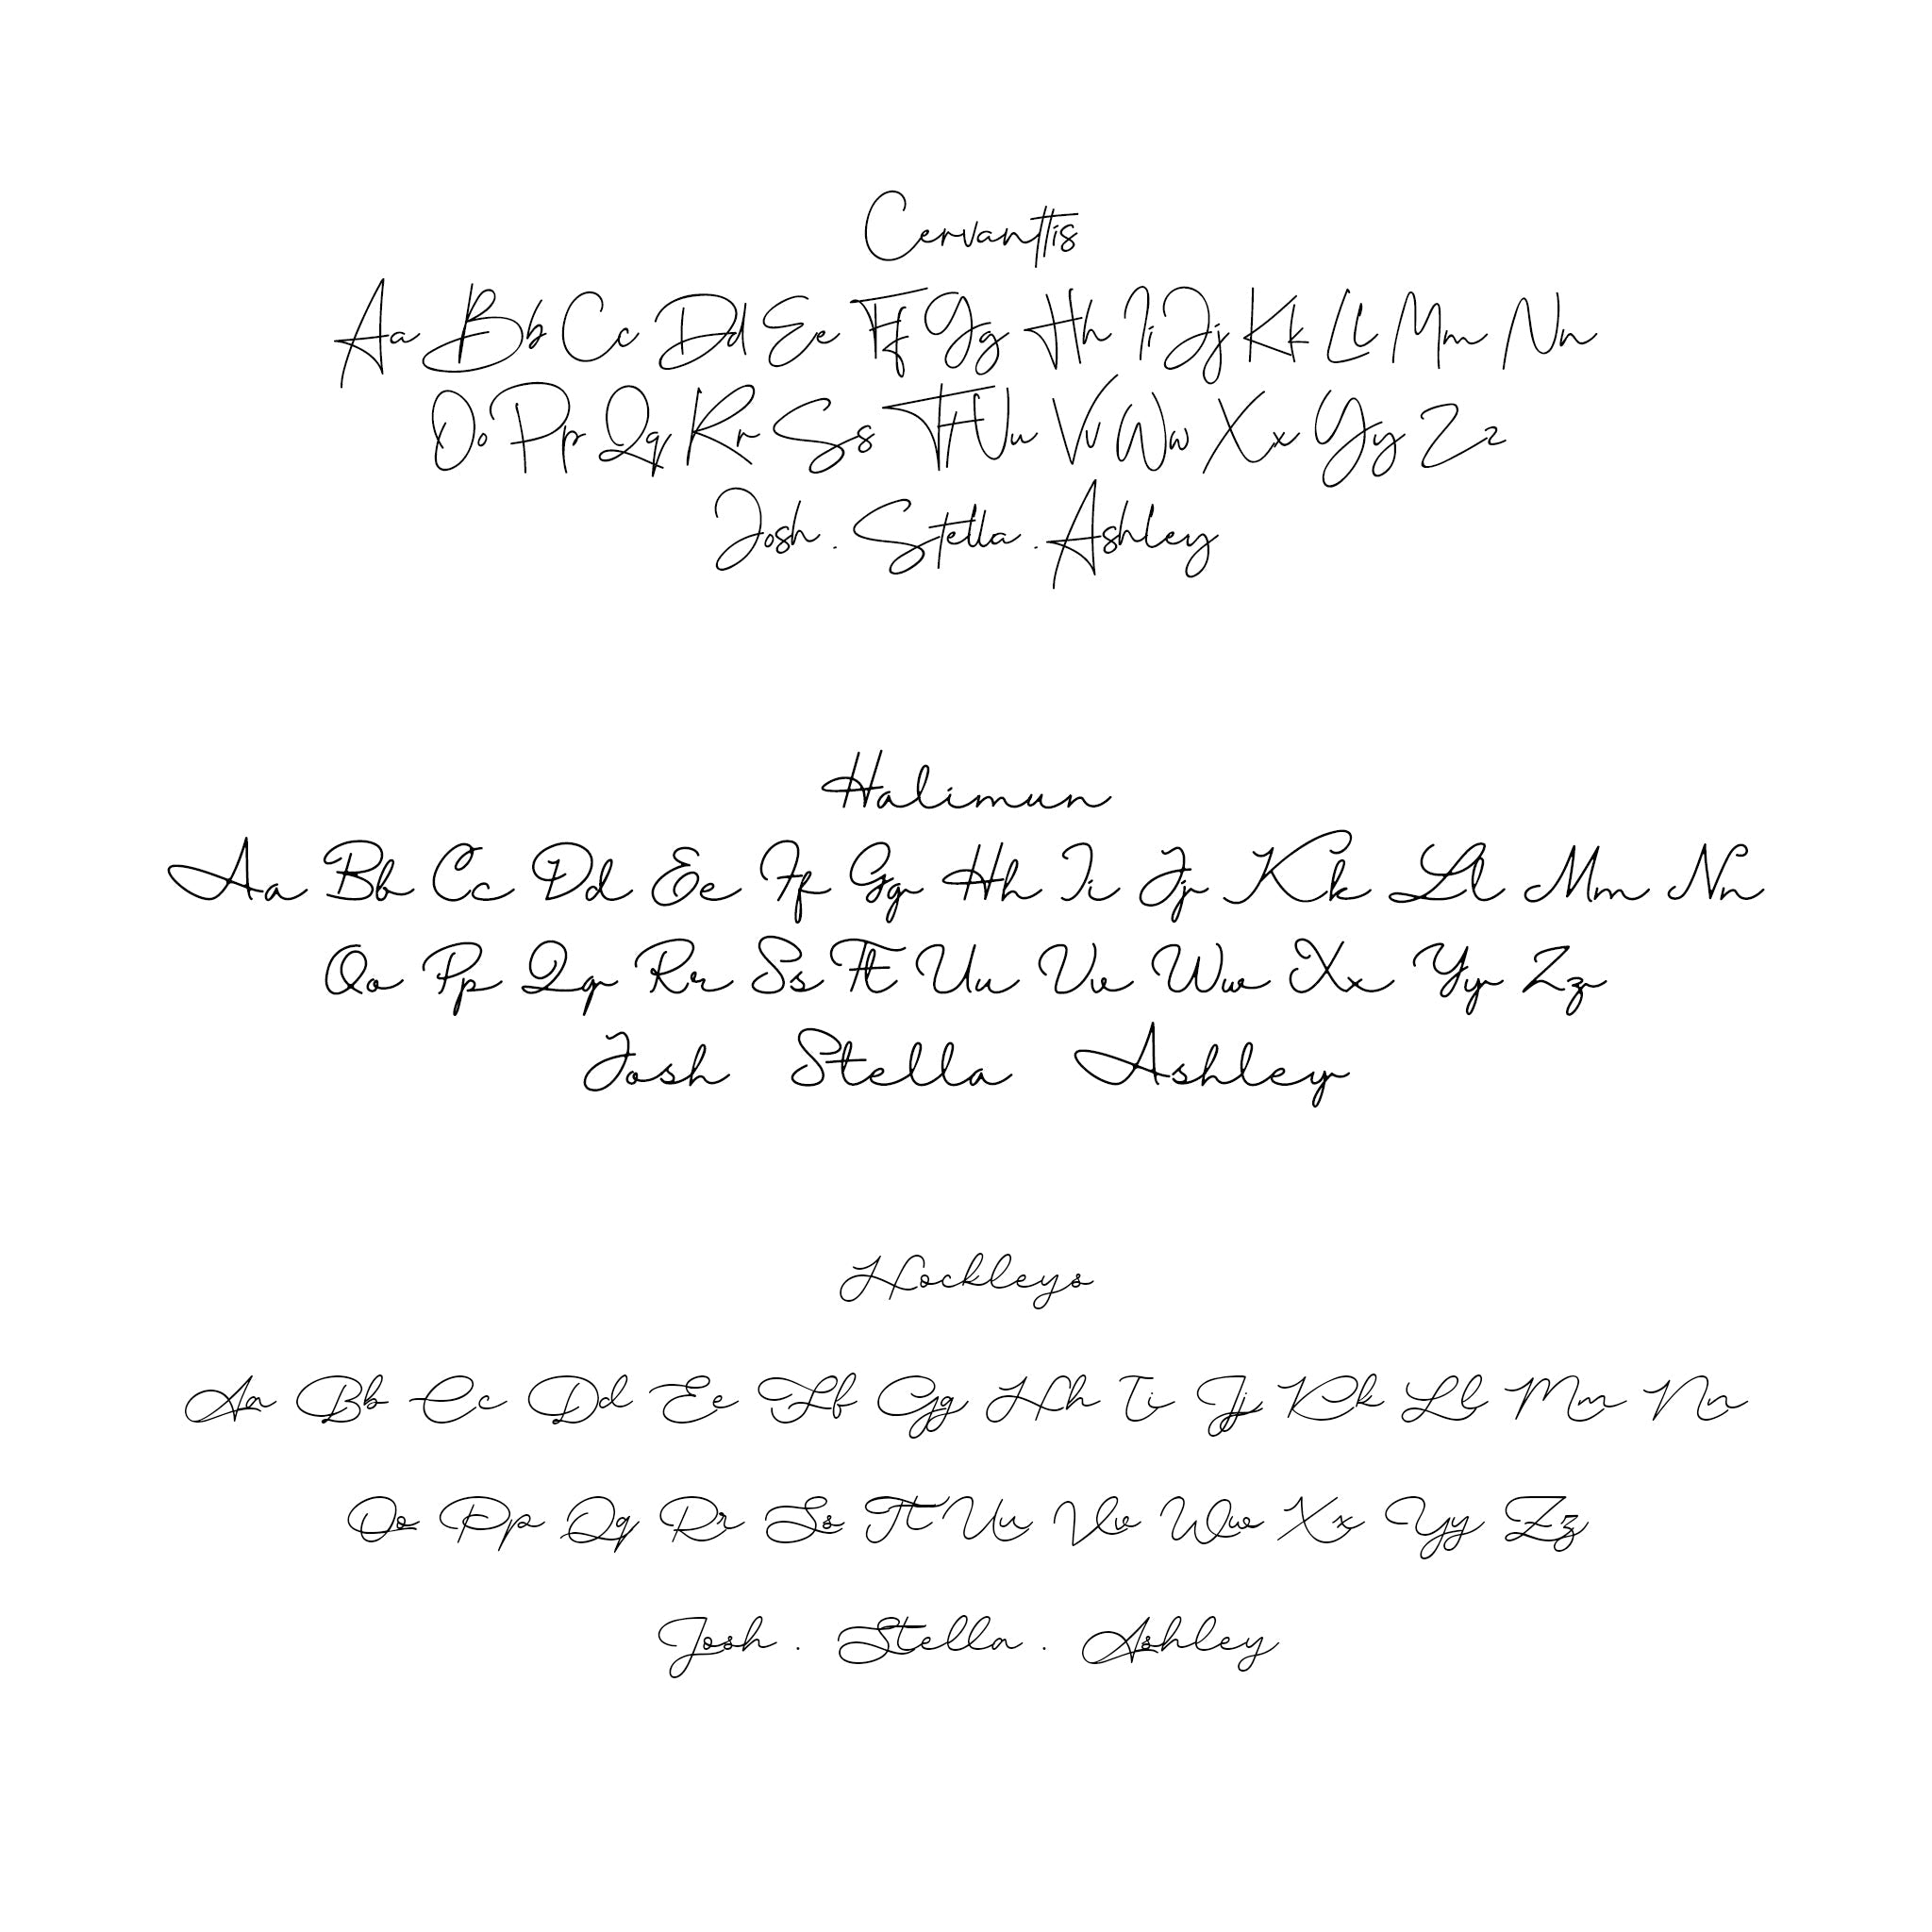 Cervanttis
Aa Bb Cc Dd Ee Ff Gg Hh Ii Jj Kk Ll Mm Nn
Oo Pp Qq Rr Ss Tt Uu Vv Ww Xx Yy Zz
Josh . Stella . Ashley
Halimun
Aa Bb Cc Dd Ee Ff Gg Hh Ii Jj Kk Ll Mm Nn
Oo Pp Qq Rr Ss Tt Uu Vv Ww Xx Yy Zz
Josh Stella Ashley
Hockleys
Aa Bb Cc Dd Ee Ff Gg Hh Ii Jj Kk Ll Mm Nn
Oo Pp Qq Rr Ss Tt Uu Vv Ww Xx Yy Zz
Josh . Stella . Ashley